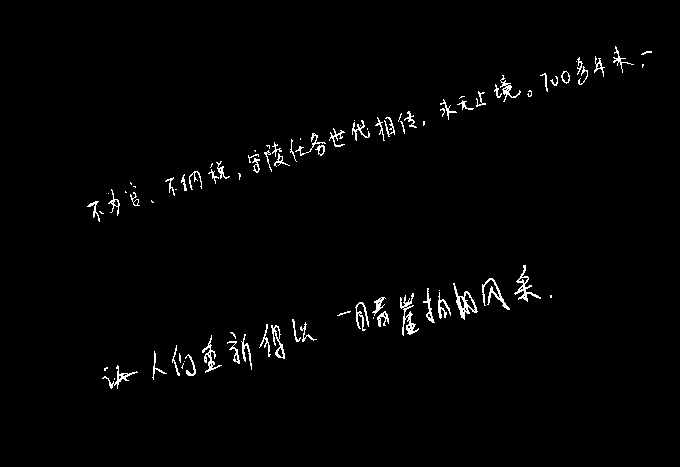 不为官、不纳税，守陵任务世代相传，永无止境。700多年来，一
让人们重新得以一睹崖柏的风采.